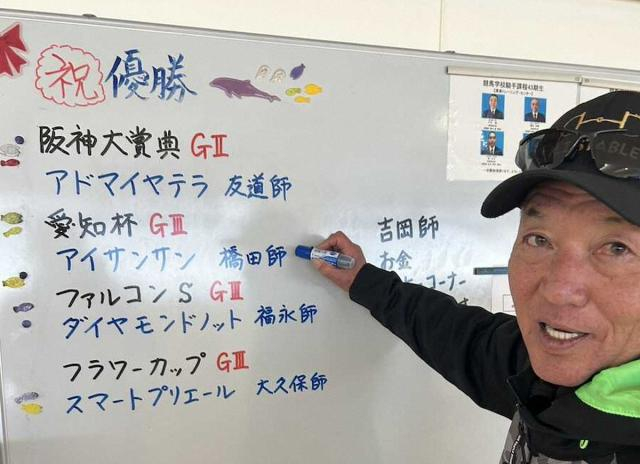 祝 優勝
阪神大賞典 GⅡ
アドマイヤテラ 友道師
愛知杯 GⅢ
アイサンサン 橋田師
ファルコンS GⅢ
ダイヤモンドノット 福永師
フラワーカップ GⅢ
スマートプリエール 大久保師
吉岡師
お金
コーナー
競馬学校騎手課程43期生
ABLE